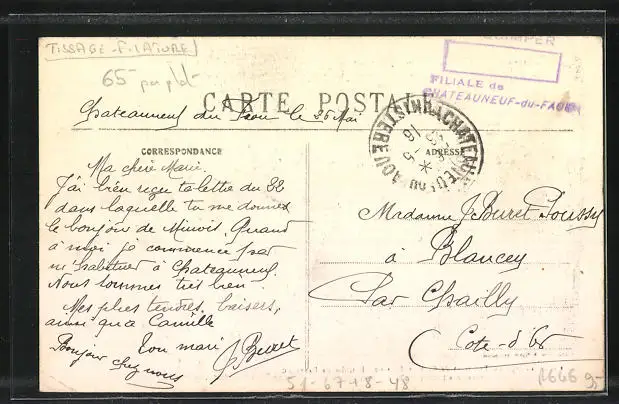 TISSAGE - FILATURE
65 -
QUIMPER
FILIALE de
CHATEAUNEUF-du-FAOU
CARTE POSTALE
Chateauneuf du Faou le 26 Mai
CORRESPONDANCE
ADRESSE
CHATEAUNEUF DU FAOU
FINISTERE
Ma chère Marie.
J'ai bien reçu ta lettre du 22
dans laquelle tu me donnes
le bonjour de Minois. Quand
à moi je commence par
m'habituer à Chateauneuf
Nous sommes très bien
Mes plus tendres baisers,
ainsi qu'à Camille
Ton mari J Buret
Bonjour
chez nous
Madame J. Buret Poussy
à Blancey
Par Chailly
Cote-d'Or
51-67+8-48
1666